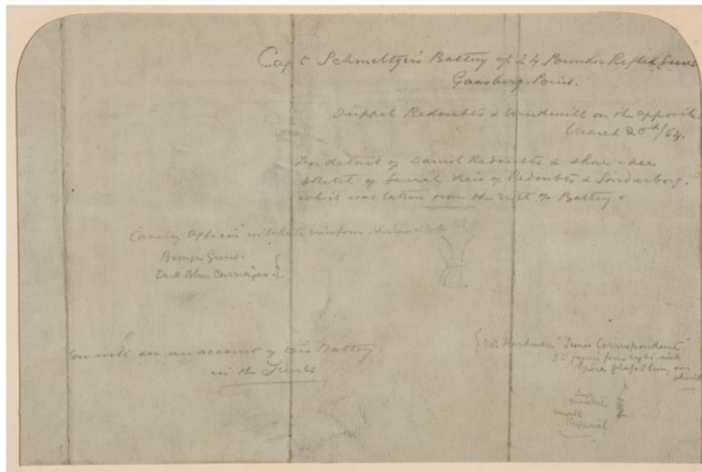 Capt Schmeltzer's Battery of 24 Pounder Rifled Guns
Gaasberg Point.
Düppel Redoubts & Windmill on the opposite
March 20th/64.
For detail of Danish Redoubts & shore. see
sketch of General View of Redoubts & Sonderborg.
which was taken from the right of Battery
Cavalry Officer in white uniform
Bronze Guns.
Dark Blue Carriages
You will see an account of this Battery
in the Times
"Times Correspondent"
figure from right with
glass slung over